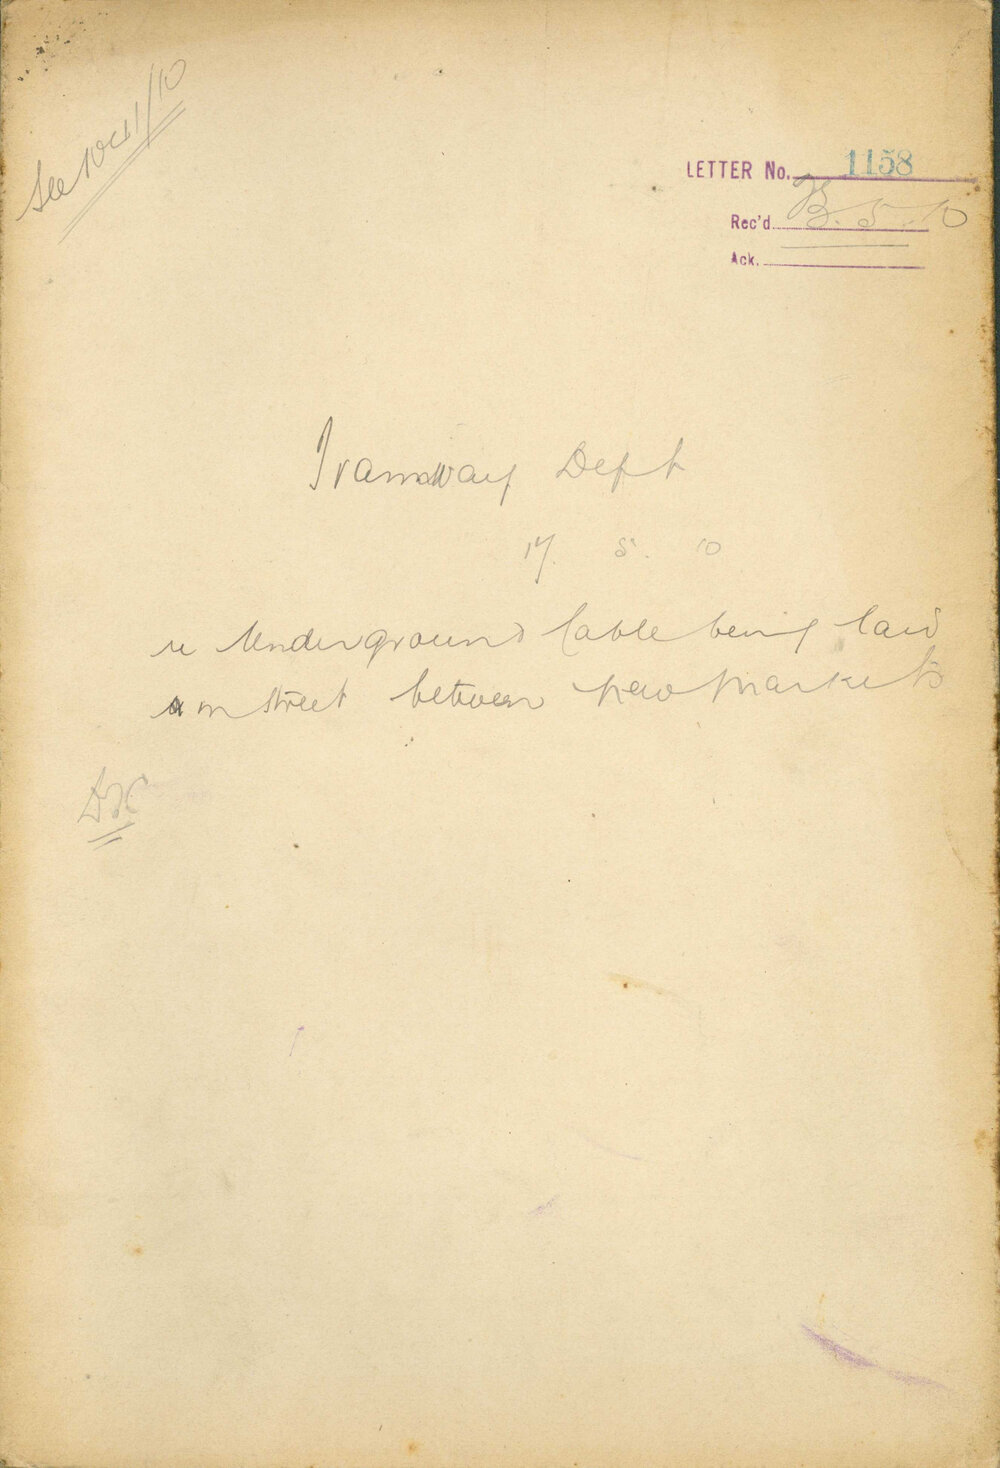 See 1041/10
LETTER No. 1158
Rec'd 5.10
Ack.
Tramway Dept
17. 5. 10
re Underground Cable being laid
in street between new markets